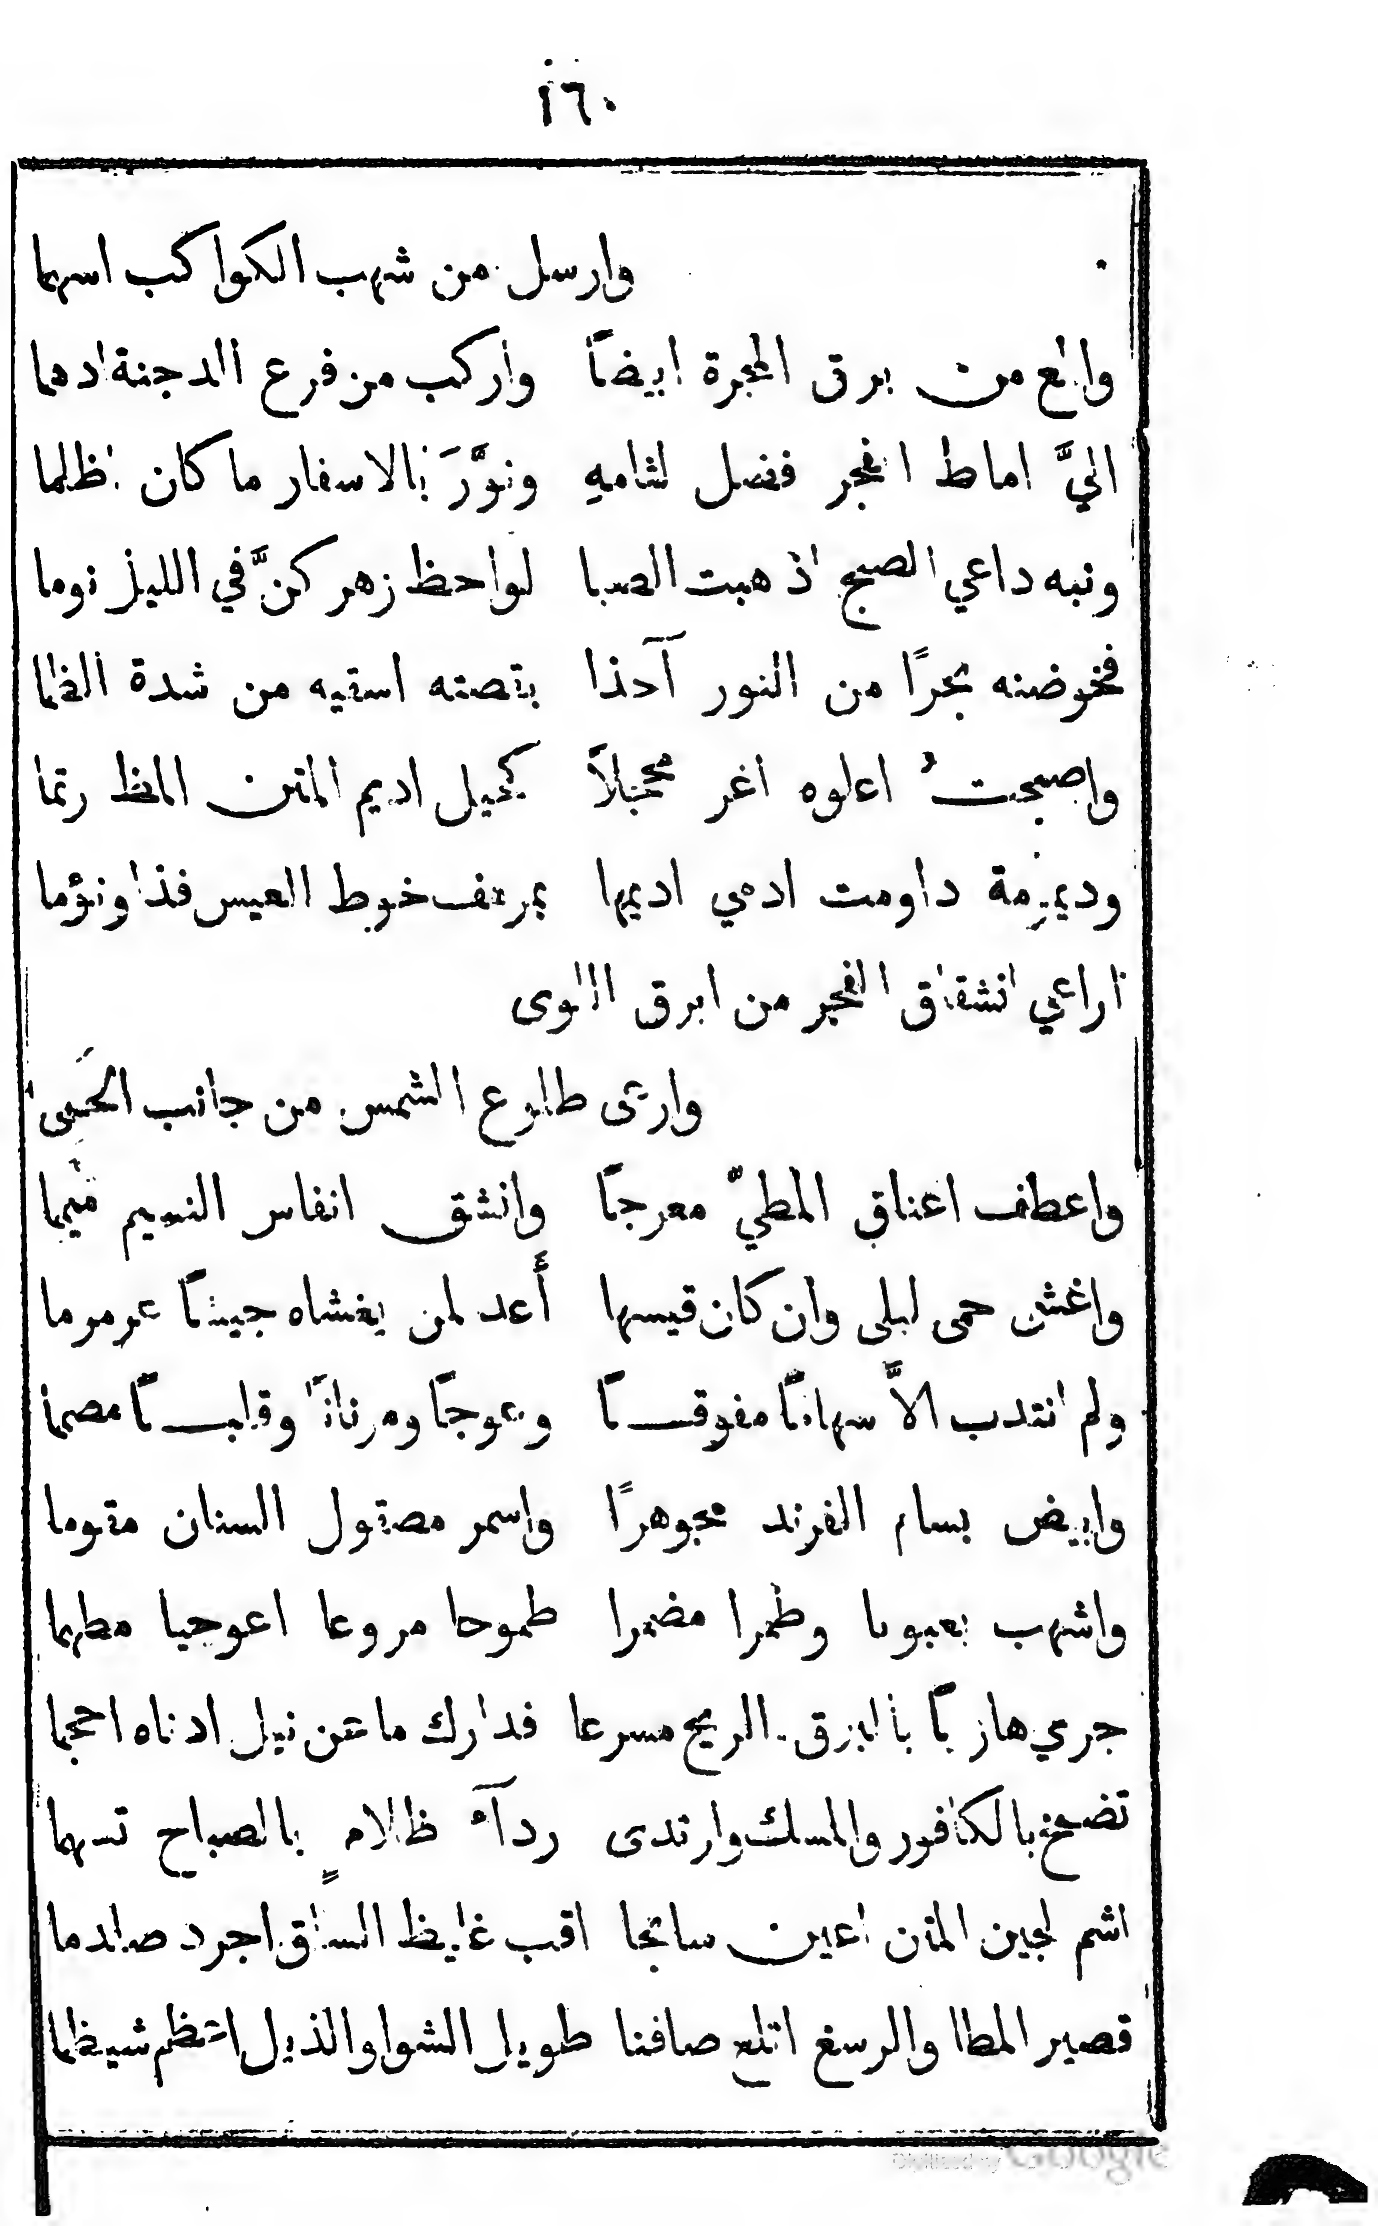 ١٦٠
وارسل من شهب الكواكب اسهما
والمع من برق المجرة ابيضًا وأركب من فرع الدجنة ادهما
اليَّ اماط الفجر فضل لثامهِ ونوَّرَ بالاسفار ما كان اظلما
ونبه داعي الصبح اذ هبت الصبا لواحظ زهر كنَّ في الليل نوما
فخوضنه بحرًا من النور آخذا بقصته اسقيه من شدة الظما
واصبحتُ اعلوه اغر محجلاً كحيل اديم المتن المظ رتما
وديمومة داومت ادمي اديمها بمرهف خوط العيس فذا ونؤما
اراعي انشقاق الفجر من ابرق اللوى
وارتى طلوع الشمس من جانب الحَمِى
واعطف اعناق المطيّ معرجًا وانشق انفاس النسيم ميمما
واغشى حمى ليلى وان كان قيسها أُعد لمن يغشاه جيشًا عرمرما
ولم انتدب الاَّ سهامًا مفوقــًا وعوجًا ومرنانًا وقلبــًا مصمما
وابيض بسام الفرند مجوهرًا واسمر مصقول السنان مقوما
واشهب يعبوبا وطمرا مضمرا طموحا مروعا اعوجيا مطهما
جرى هازبًا بالبرق الريح مسرعا فدارك ما عن نيل ادناه احجما
تضمخ بالكافور والمسك وارتدى ردآء ظلامٍ بالصباح تسهما
اشم لجين المتن اعين سابحا اقب غليظ الساق اجرد صلدما
قصير المطا والرسغ اتلع صافنا طويل الشوا والذيل اعظم شيظما
Digitized by Google